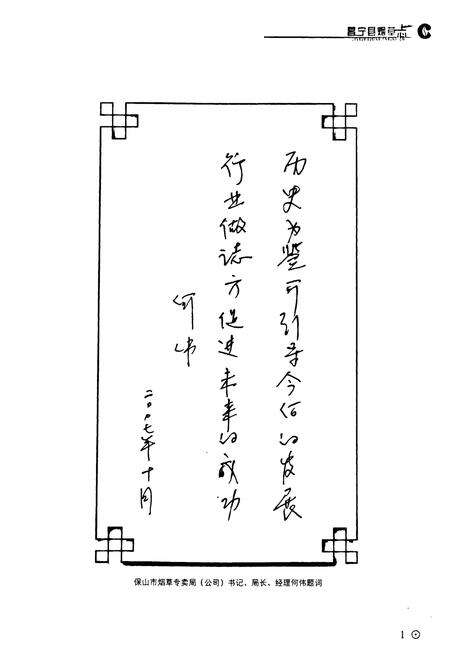 昌宁县烟草志
历史为鉴可引导今后的发展
行业做志方促进未来的成功
何伟
二〇〇七年十月
保山市烟草专卖局(公司)书记、局长、经理何伟题词
1